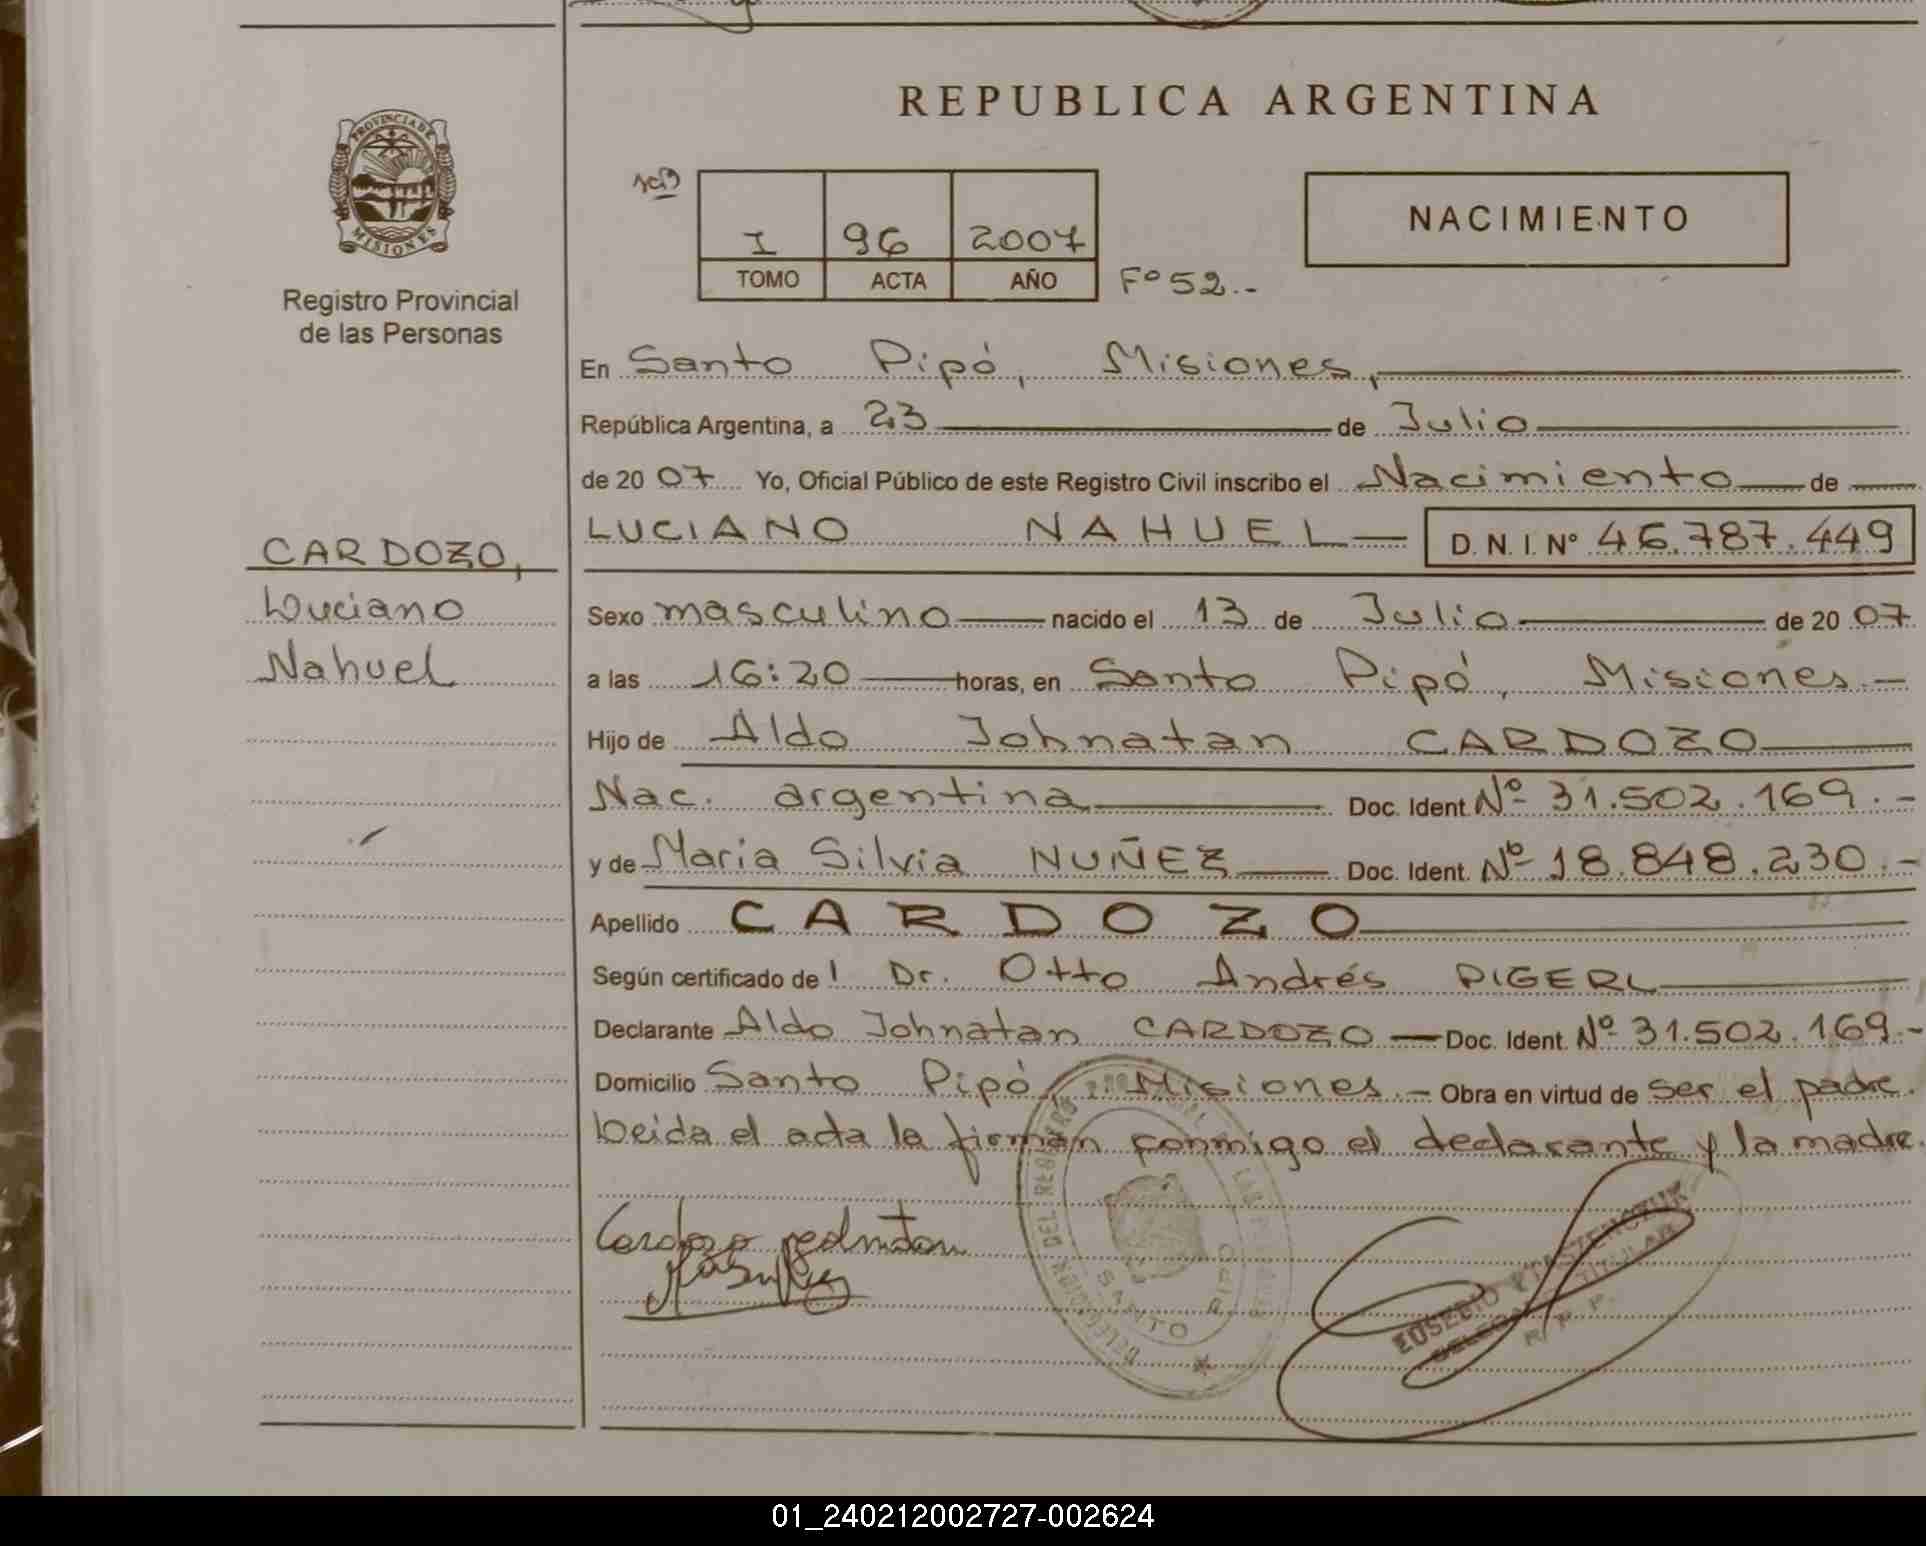 REPUBLICA ARGENTINA
PROVINCIA DE
MISIONES
Registro Provincial
de las Personas
I 96 2007
TOMO ACTA AÑO
Fº 52.-
NACIMIENTO
En Santo Pipó, Misiones,
República Argentina, a 23 de Julio
de 2007 Yo, Oficial Público de este Registro Civil inscribo el Nacimiento de
LUCIANO NAHUEL D. N. I. Nº 46.787.449
CARDOZO,
Luciano
Nahuel
Sexo masculino nacido el 13 de Julio de 2007
a las 16:20 horas, en Santo Pipó, Misiones.-
Hijo de Aldo Johnatan CARDOZO
Nac. argentina Doc. Ident. Nº 31.502.169.-
y de Maria Silvia NUÑEZ Doc. Ident. Nº 18.848.230.-
Apellido CARDOZO
Según certificado de: Dr. Otto Andrés PIGERL
Declarante Aldo Johnatan CARDOZO - Doc. Ident. Nº 31.502.169.-
Domicilio Santo Pipó Misiones.- Obra en virtud de ser el padre.
Leida el acta la firman conmigo el declarante y la madre.
Cardozo
SANTO PIPO
EUSEBIO
TITULAR
R. P. P.
01_240212002727-002624